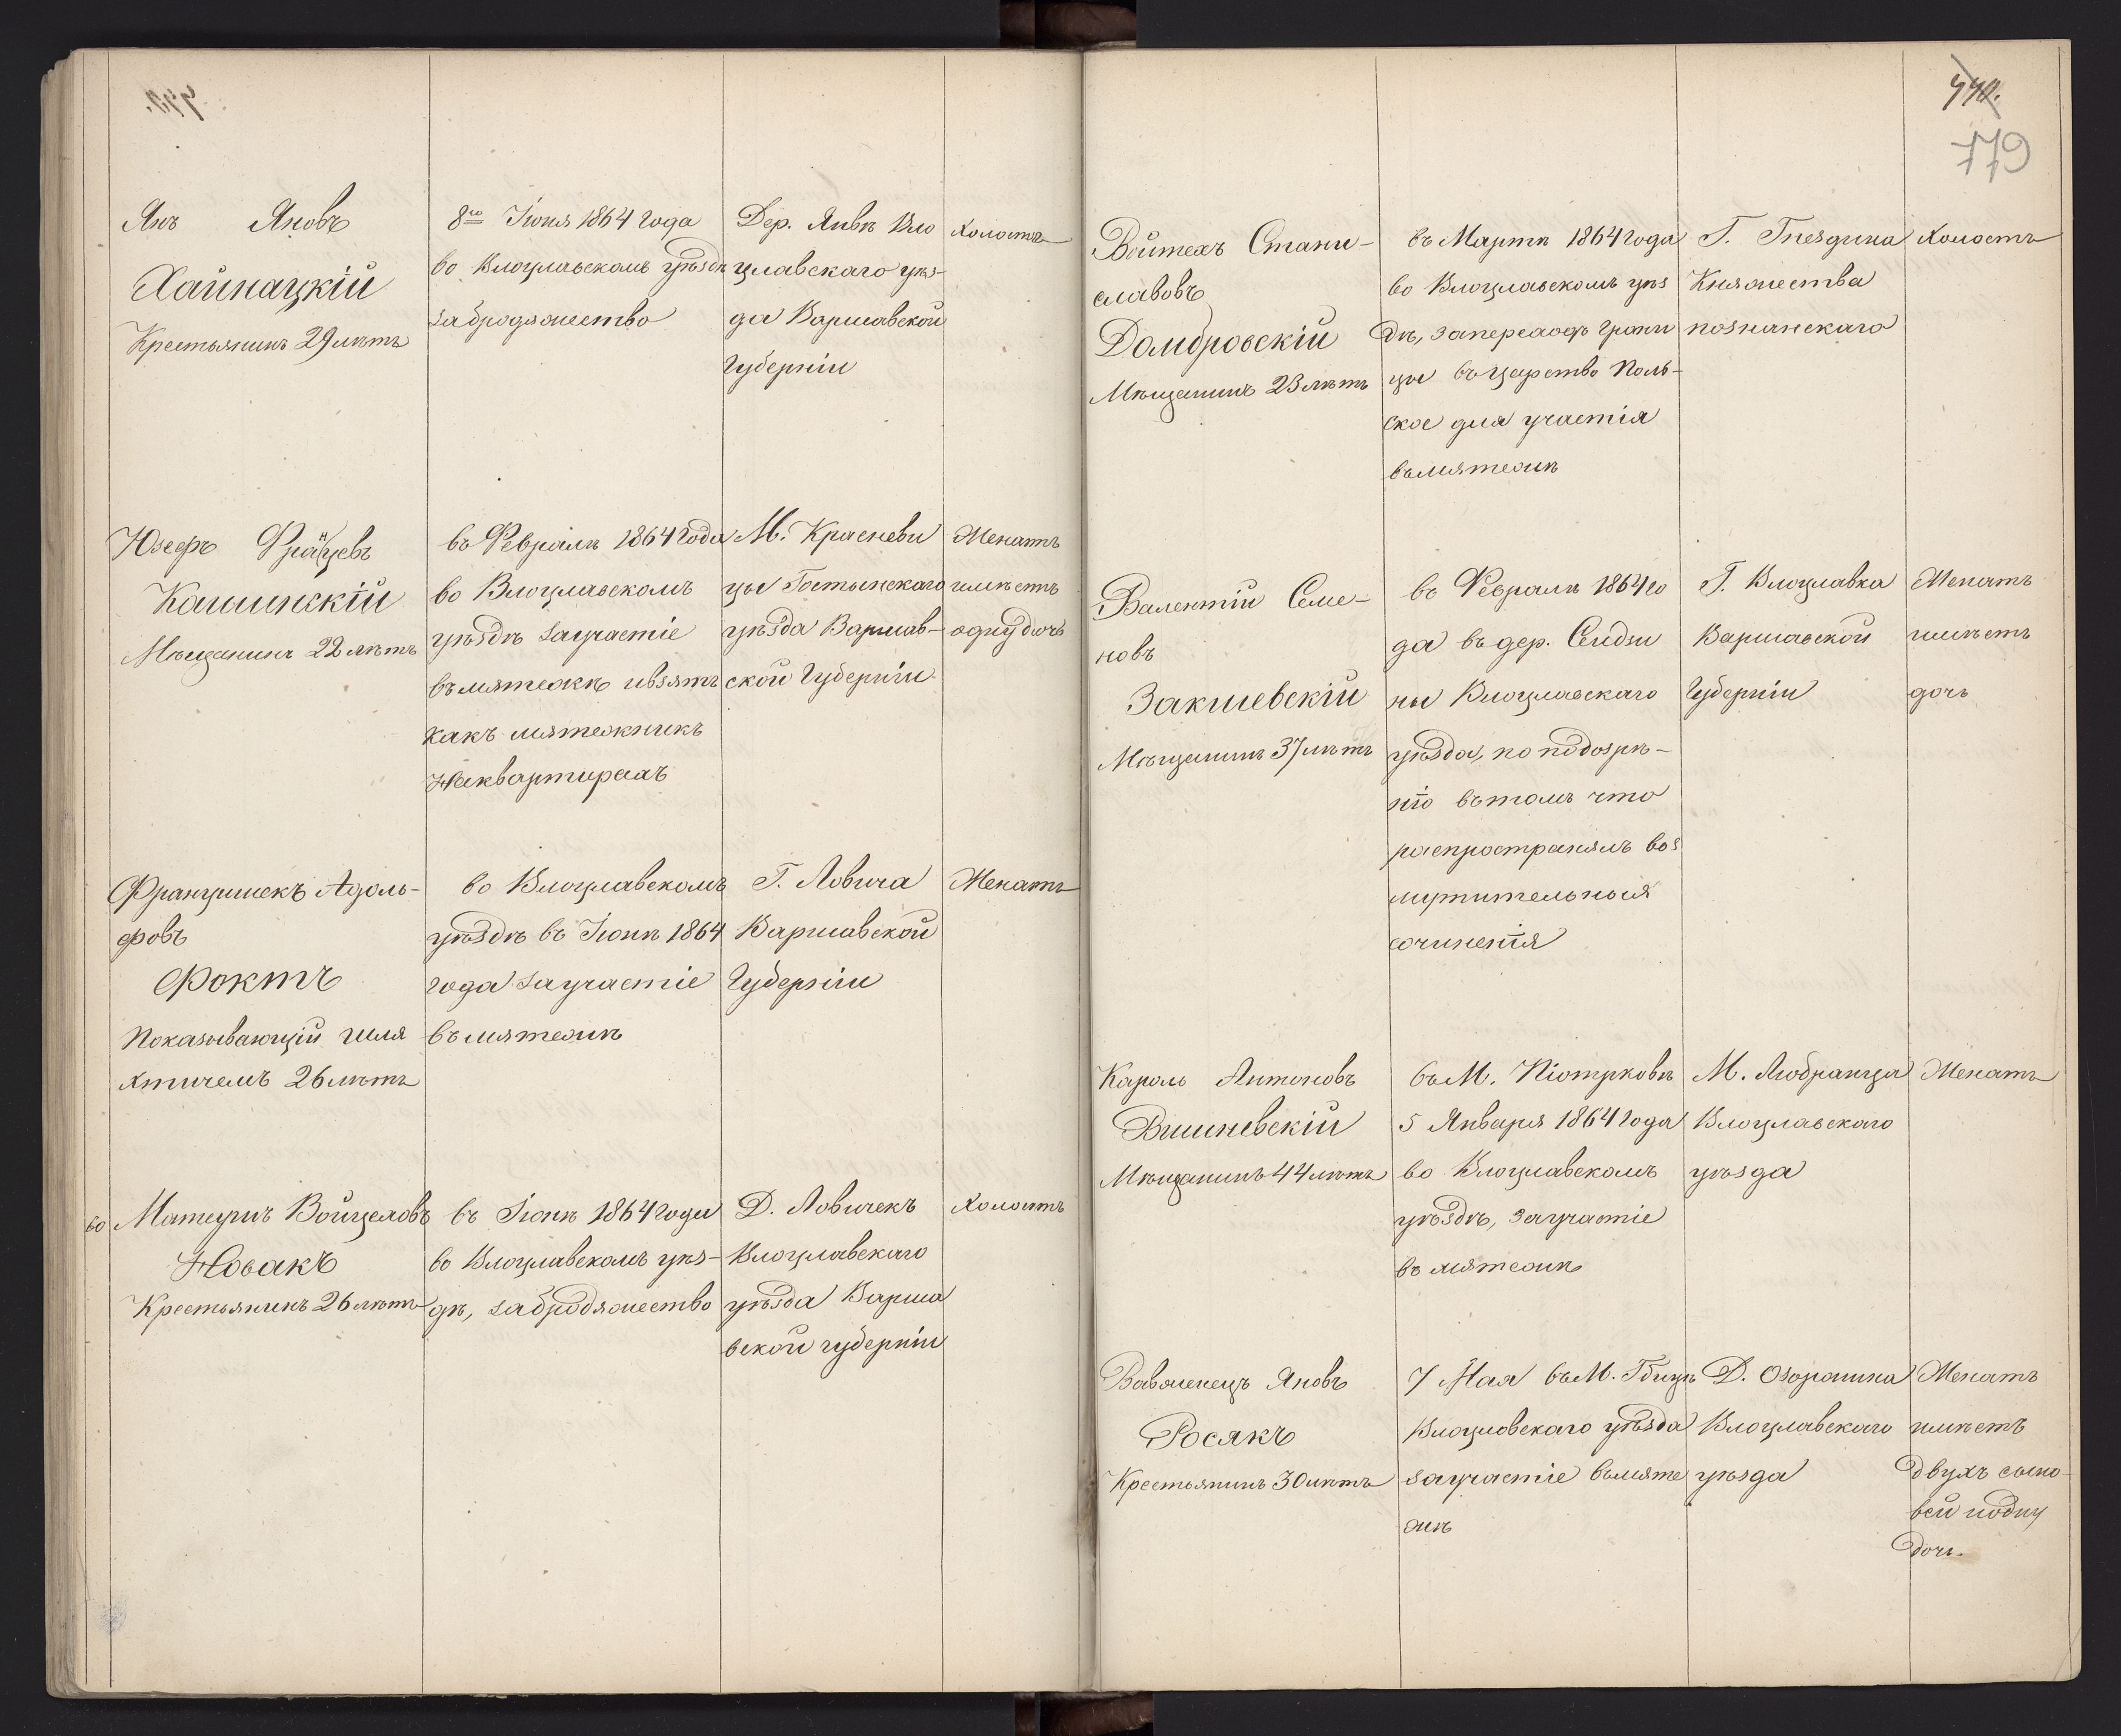 Янъ Яновъ
Хайнацкій
Крестьянинъ 29 лѣтъ
8го Іюня 1864 года
во Влоцлавскомъ уѣздѣ
за бродяжество
Дер. Янвѣ Вло
цлавскаго уѣз-
да Варшавской
Губерніи
Холостъ
Юзефъ Францевъ
Кашинскій
Мѣщанинъ 22 лѣтъ
въ Февралѣ 1864 года
во Влоцлавскомъ
уѣздѣ за участіе
въ мятежѣ и взятъ
какъ мятежникъ
на квартирахъ
М. Красневи
цы Гостынскаго
уѣзда Варшав-
ской Губерніи
Женатъ
имѣетъ
одну дочь
Францишекъ Адоль-
фовъ
Фоктъ
Показывающій шля
хтичемъ 26 лѣтъ
во Влоцлавскомъ
уѣздѣ въ Іюнѣ 1864
года за участіе
въ мятежѣ
Г. Ловича
Варшавской
Губерніи
Женатъ
во
Матеушъ Войцеховъ
Новакъ
Крестьянинъ 26 лѣтъ
въ Іюнѣ 1864 года
во Влоцлавскомъ уѣз-
дѣ, за бродяжество
Д. Ловичекъ
Влоцлавскаго
уѣзда Варша
вской губерніи
Холостъ
440.
779
Войтехъ Стани-
славовъ
Домбровскій
Мѣщанинъ 23 лѣтъ
въ Мартѣ 1864 года
во Влоцлавскомъ уѣз
дѣ, за переходъ грани
цы въ царство Поль-
ское для участія
въ мятежѣ
Г. Гнездина
Княжества
познанскаго
Холостъ
Валентій Семе-
новъ
Закшевскій
Мѣщанинъ 37 лѣтъ
въ Февралѣ 1864 го
да въ дер. Сендзи
ны Влоцлавскаго
уѣзда, по подозрѣ-
нію въ томъ что
распространялъ воз
мутительныя
сочиненія
Г. Влоцлавка
Варшавской
Губерніи
Женатъ
имѣетъ
дочь
Кароль Антоновъ
Вишневскій
Мѣщанинъ 44 лѣтъ
въ М. Піотрковѣ
5 Января 1864 года
во Влоцлавскомъ
уѣздѣ, за участіе
въ мятежѣ
М. Любранца
Влоцлавскаго
уѣзда
Женатъ
Вавженецъ Яновъ
Росякъ
Крестьянинъ 30 лѣтъ
7 Мая въ М. Гбицѣ
Влоцловскаго уѣзда
за участіе въ мяте
жѣ
Д. Озорошина
Влоцлавскаго
уѣзда
Женатъ
имѣетъ
двухъ сыно-
вей и одну
дочь.